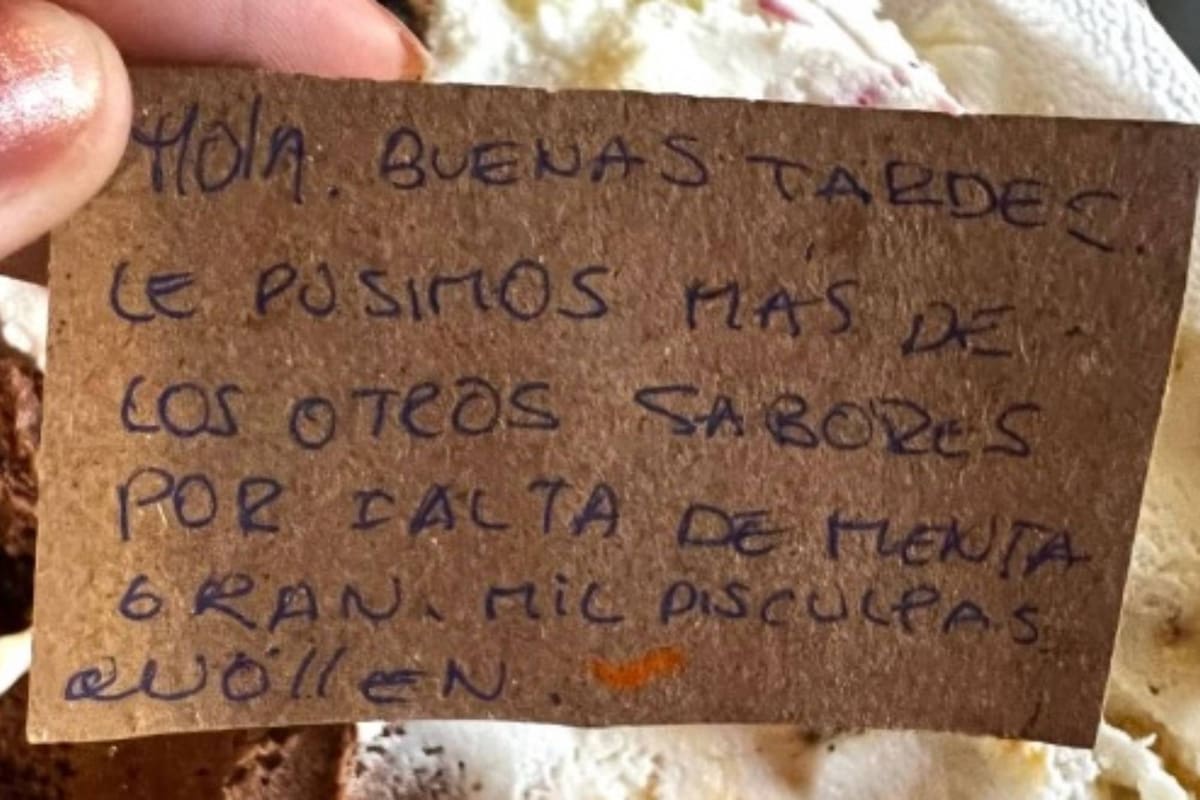 HOlA. BUENAS TARDES.
LE PUSIMOS MAS DE
LOS OTROS SABORES
POR FALTA DE MENTA
GRAN. MiL DISCULPAS